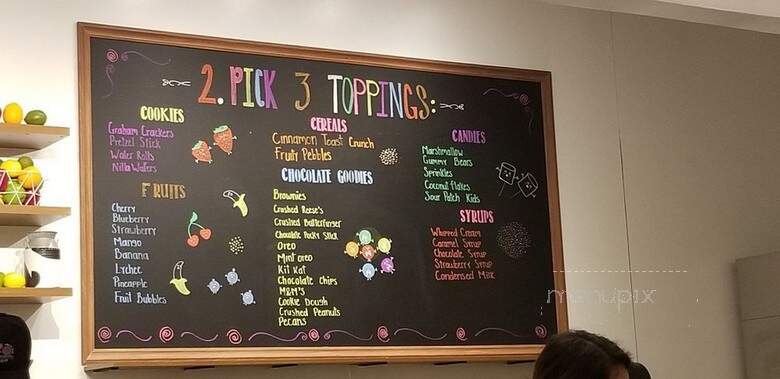 2. PICK 3 TOPPINGS:
COOKIES
Graham Crackers
Pretzel Stick
Wafer Rolls
Nilla Wafers
FRUITS
Cherry
Blueberry
Strawberry
Mango
Banana
Lychee
Pineapple
Fruit Bubbles
CEREALS
Cinnamon Toast Crunch
Fruity Pebbles
CHOCOLATE GOODIES
Brownies
Crushed Reese's
Crushed Butterfinger
Chocolate Pocky Stick
Oreo
Mint Oreo
Kit Kat
Chocolate Chips
M&M'S
Cookie Dough
Crushed Peanuts
Pecans
CANDIES
Marshmallow
Gummy Bears
Sprinkles
Coconut Flakes
Sour Patch Kids
SYRUPS
Whipped Cream
Caramel Syrup
Chocolate Syrup
Strawberry Syrup
Condensed Milk
menupix